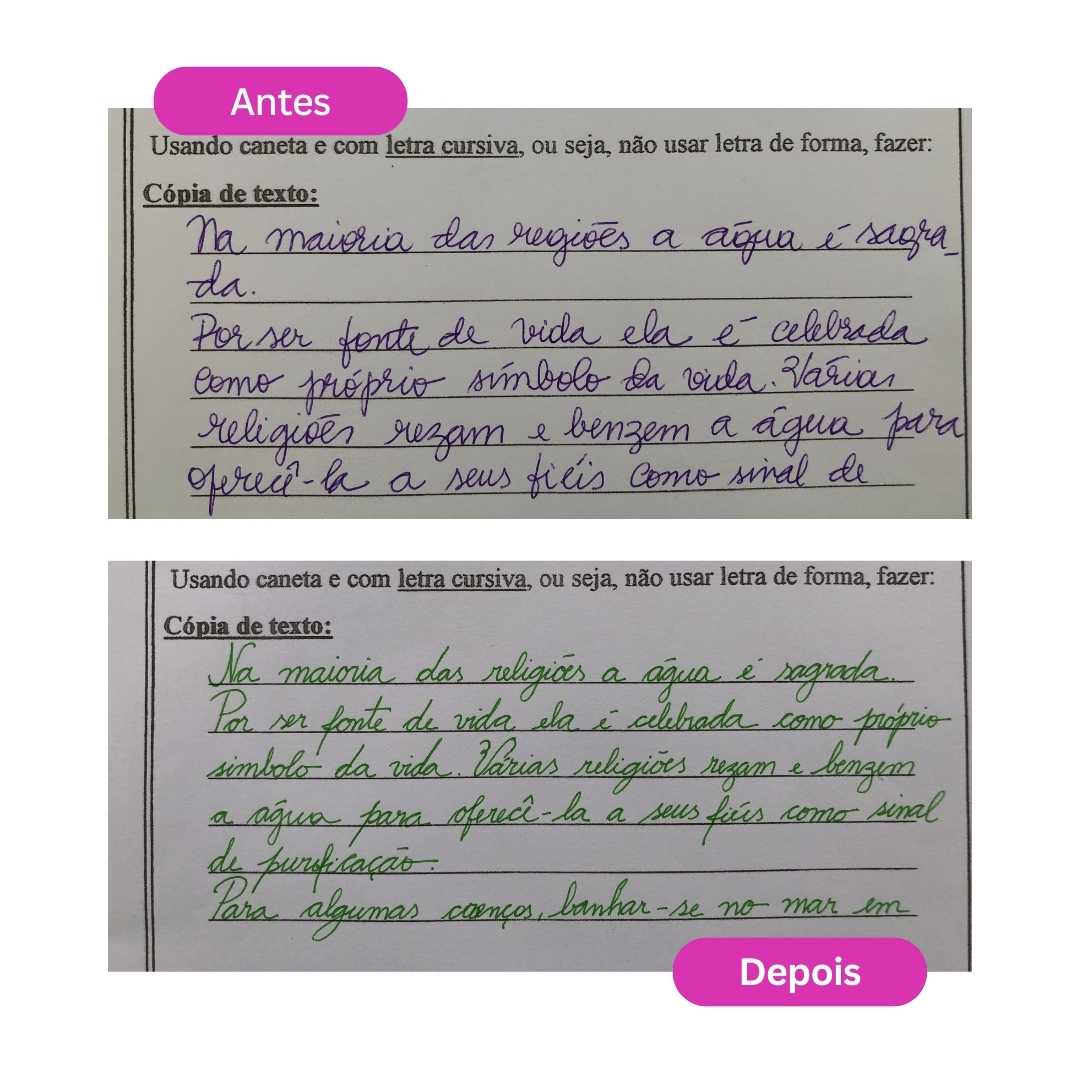 Antes
Usando caneta e com letra cursiva, ou seja, não usar letra de forma, fazer:
Cópia de texto:
Na maioria das regiões a água é sagra_
da.
Por ser fonte de vida ela é celebrada
como próprio símbolo da vida. Várias
religiões rezam e benzem a água para
oferecê-la a seus fiéis como sinal de
Usando caneta e com letra cursiva, ou seja, não usar letra de forma, fazer:
Cópia de texto:
Na maioria das religiões a água é sagrada.
Por ser fonte de vida ela é celebrada como próprio
simbolo da vida. Várias religiões rezam e benzem
a água para oferecê-la a seus fiéis como sinal
de purificação.
Para algumas banhar-se no mar em
Depois